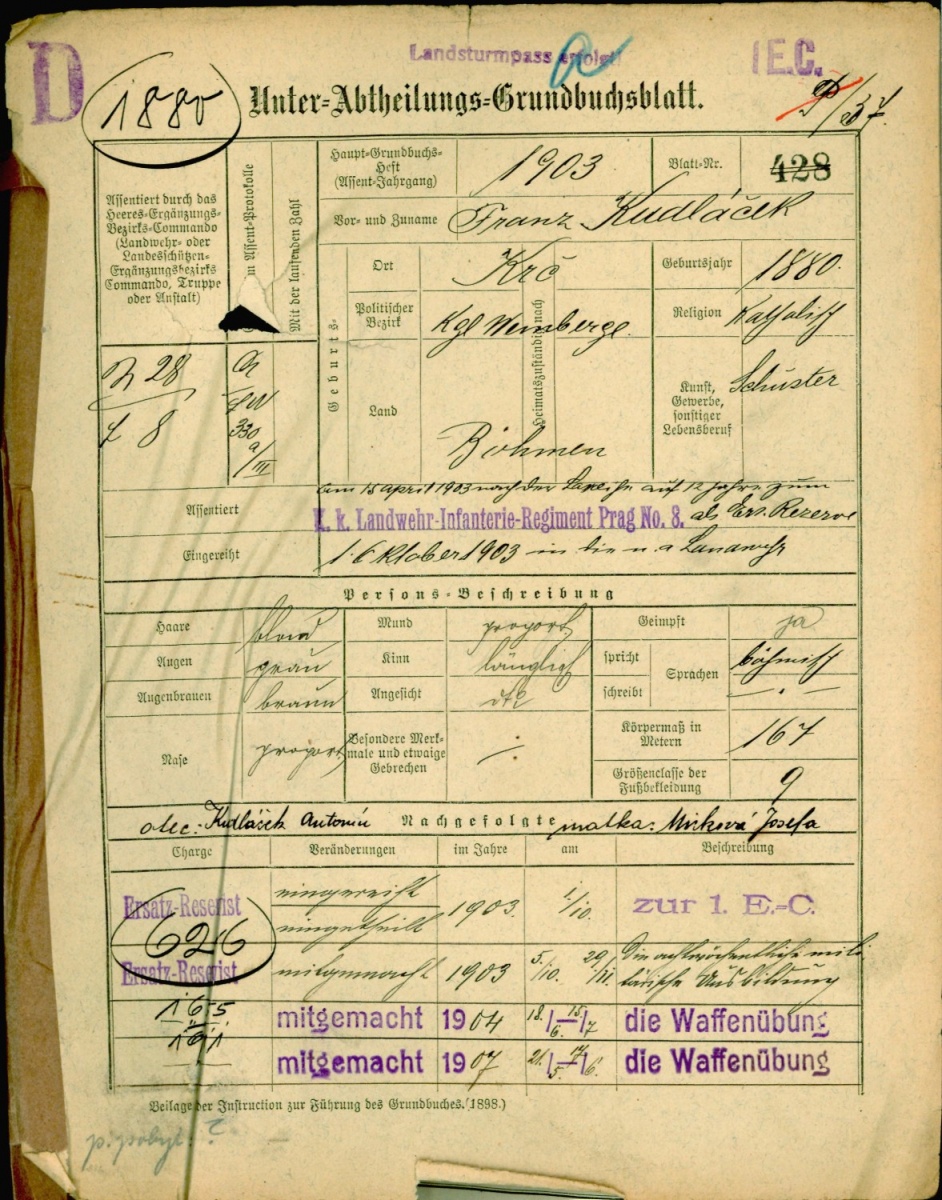 D
1880
Landsturmpass erfolgt
a
1 E.C.
Unter-Abtheilungs-Grundbuchsblatt.
Assentiert durch das
Heeres-Ergänzungs-
Bezirks-Commando
(Landwehr- oder
Landesschützen-
Ergänzungsbezirks
Commando, Truppe
oder Anstalt)
m Assent-Protokolle
Mit der laufenden Zahl
Haupt-Grundbuchs-
Heft
(Assent-Jahrgang)
1903
Blatt-Nr.
428
Vor- und Zuname
Franz Kudláček
Geburts-
Ort
Krč
Geburtsjahr
1880.
Politischer
Bezirk
Kgl Weinberge
Heimatszuständig nach
Religion
Katholisch
Land
Böhmen
Kunst,
Gewerbe,
sonstiger
Lebensberuf
Schuster
28
8
330
a/III
Assentiert
am 15 april 1903 nach der auf 12 Jahre zum
K. k. Landwehr-Infanterie-Regiment Prag No. 8. als Ers. Rezerve
Eingereiht
1. Oktober 1903 in die n. a Landwehr
Persons-Beschreibung
Haare
blond
Mund
proport.
Geimpft
ja
Augen
grau
Kinn
länglich
spricht
schreibt
Sprachen
böhmisch
Augenbrauen
braun
Angesicht
dto
Nase
proport.
Besondere Merk-
male und etwaige
Gebrechen
Körpermaß in
Metern
167
Größenclasse der
Fußbekleidung
9
otec: Kudláček Antonín Nachgefolgte matka: Josefa
Charge Veränderungen im Jahre am Beschreibung
Ersatz-Reserist
eingereiht
eingetheilt
1903.
1/10.
zur 1. E.-C.
626
Ersatz-Reserist
mitgemacht
1903
5./10. 29./11.
Die achtwöchentliche mili
tärische Ausbildung
165
mitgemacht 1904 18./6.–15./7 die Waffenübung
161
mitgemacht 1907 21./5–17/6. die Waffenübung
Beilage der Instruction zur Führung des Grundbuches. (1898.)
p. pobyt: ?